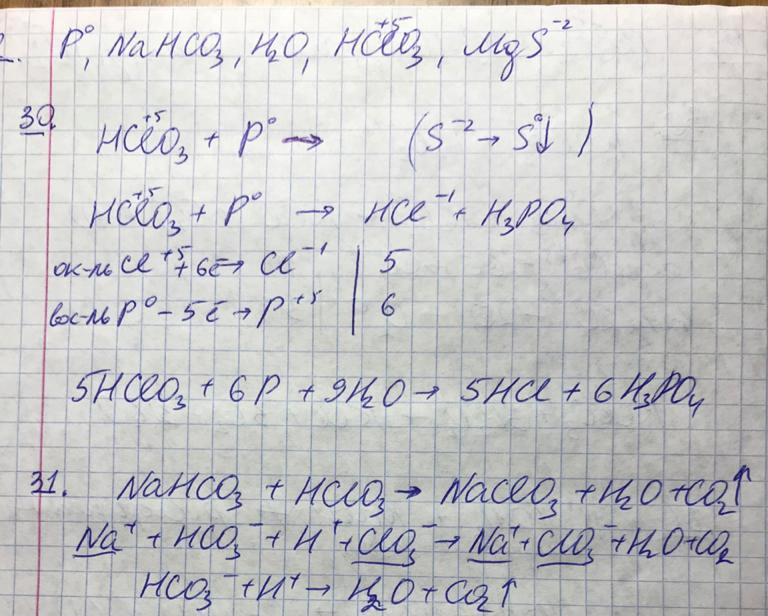 2. P⁰, NaHCO₃, H₂O, HCl⁺⁵O₃, MgS⁻²
30. HCl⁺⁵O₃ + P⁰ → (S⁻² → S⁰↓)
HCl⁺⁵O₃ + P⁰ → HCl⁻¹ + H₃PO₄
ок-ль Cl⁺⁵ + 6ē → Cl⁻¹ | 5
вос-ль P⁰ – 5ē → P⁺⁵ | 6
5HClO₃ + 6P + 9H₂O → 5HCl + 6H₃PO₄
31. NaHCO₃ + HClO₃ → NaClO₃ + H₂O + CO₂↑
Na⁺ + HCO₃⁻ + H⁺ + ClO₃⁻ → Na⁺ + ClO₃⁻ + H₂O + CO₂
HCO₃⁻ + H⁺ → H₂O + CO₂↑